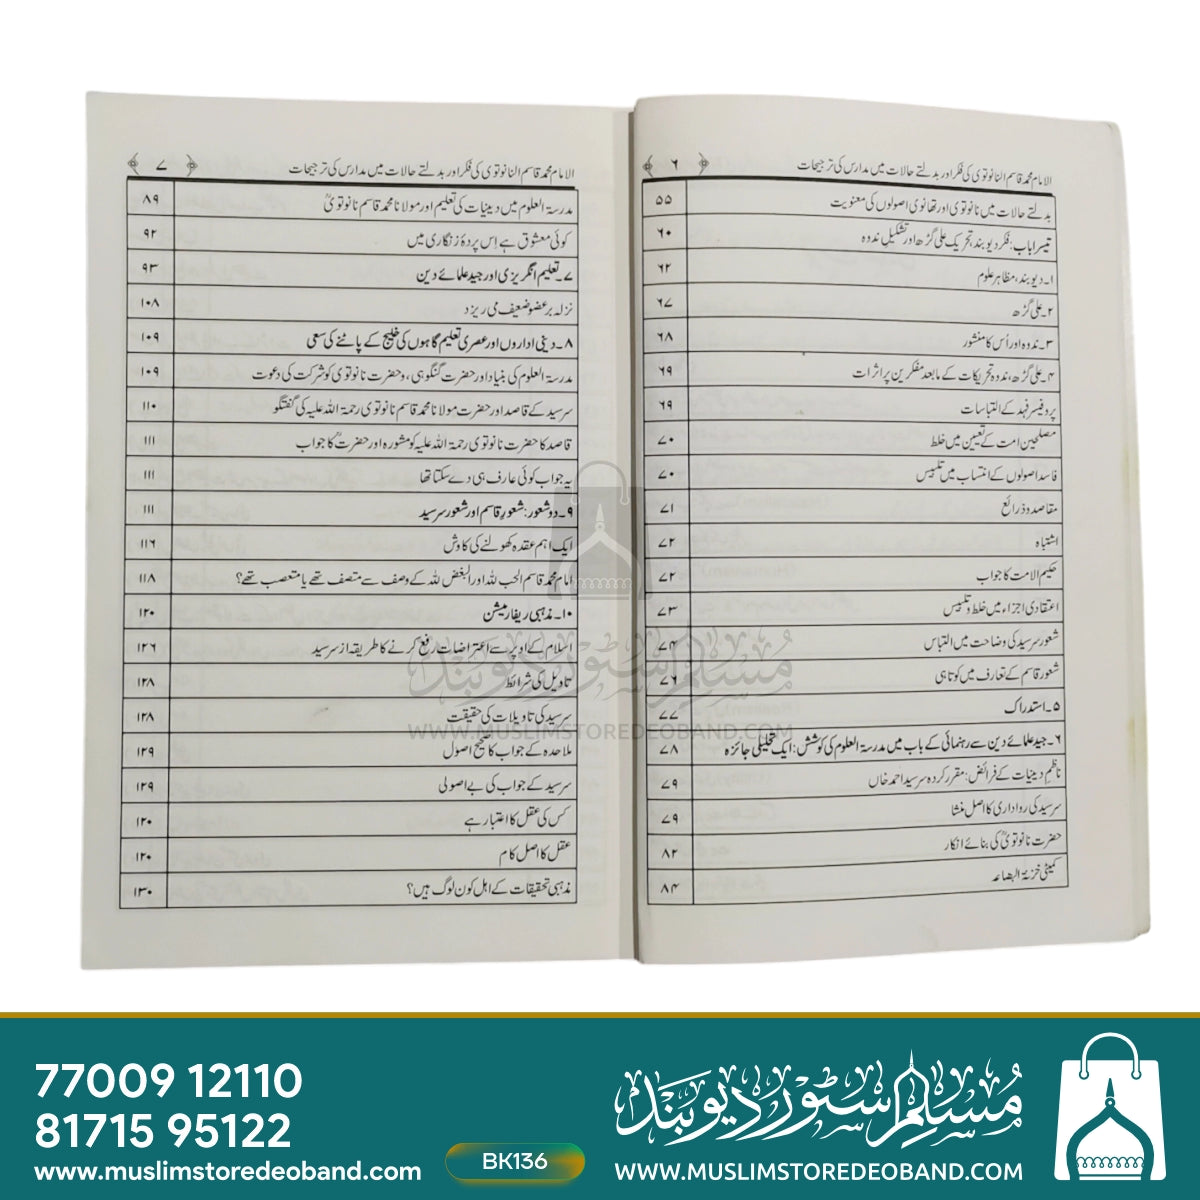 الامام محمد قاسم النانوتوی کی فکر اور بدلتے حالات میں مدارس کی ترجیحات ۶
بدلتے حالات میں نانوتوی اور تھانوی اصولوں کی معنویت ۵۵
تیسرا باب: فکر دیوبند، تحریک علی گڑھ اور تشکیل ندوہ ۶۰
۱۔ دیوبند، مظاہر علوم ۶۲
۲۔ علی گڑھ ۶۷
۳۔ ندوہ اور اُس کا منشور ۶۸
۴۔ علی گڑھ، ندوہ تحریکات کے مابعد مفکرین پر اثرات ۶۹
پروفیسر فہد کے التباسات ۶۹
مصلحین امت کے تعیین میں خلط ۷۰
فاسد اصولوں کے انتساب میں تلبیس ۷۰
مقاصد و ذرائع ۷۱
اشتباہ ۷۲
حکیم الامت کا جواب ۷۲
اعتقادی اجزاء میں خلط و تلبیس ۷۳
شعور سرسید کی وضاحت میں التباس ۷۴
شعور قاسم کے تعارف میں کوتاہی ۷۶
۵۔ استدراک ۷۷
۶۔ جید علمائے دین سے رہنمائی کے باب میں مدرسۃ العلوم کی کوشش: ایک تحلیلی جائزہ ۷۸
ناظم دینیات کے فرائض: مقرر کردہ سرسید احمد خاں ۷۹
سرسید کی رواداری کا اصل منشا ۷۹
حضرت نانوتویؒ کی بنائے انکار ۸۲
کمیٹی خزنۃ البضاعہ ۸۴
الامام محمد قاسم النانوتوی کی فکر اور بدلتے حالات میں مدارس کی ترجیحات ۷
مدرسۃ العلوم میں دینیات کی تعلیم اور مولانا محمد قاسم نانوتویؒ ۸۹
کوئی معشوق ہے اِس پردۂ زنگاری میں ۹۲
۷۔ تعلیم انگریزی اور جید علمائے دین ۹۳
نزلہ بر عضو ضعیف می ریزد ۱۰۸
۸۔ دینی اداروں اور عصری تعلیم گاہوں کی خلیج کے پاٹنے کی سعی ۱۰۹
مدرسۃ العلوم کی بنیاد اور حضرت گنگوہی، و حضرت نانوتوی کو شرکت کی دعوت ۱۰۹
سرسید کے قاصد اور حضرت مولانا محمد قاسم نانوتوی رحمۃ اللہ علیہ کی گفتگو ۱۱۰
قاصد کا حضرت نانوتوی رحمۃ اللہ علیہ کو مشورہ اور حضرتؒ کا جواب ۱۱۱
یہ جواب کوئی عارف ہی دے سکتا تھا ۱۱۱
۹۔ دو شعور: شعورِ قاسم اور شعور سرسید ۱۱۱
ایک اہم عقدہ کھولنے کی کاوش ۱۱۶
امام محمد قاسم الحب للہ اور البغض للہ کے وصف سے متصف تھے یا متعصب تھے؟ ۱۱۸
۱۰۔ مذہبی ریفارمیشن ۱۲۰
اسلام کے اوپر سے اعتراضات رفع کرنے کا طریقہ از سرسید ۱۲۶
تاویل کی شرائط ۱۲۸
سرسید کی تاویلات کی حقیقت ۱۲۸
ملاحدہ کے جواب کا صحیح اصول ۱۲۹
سرسید کے جواب کی بے اصولی ۱۲۹
کس کی عقل کا اعتبار ہے ۱۲۰
عقل کا اصل کام ۱۲۰
مذہبی تحقیقات کے اہل کون لوگ ہیں؟ ۱۳۰
مسلم سٹور دیوبند
WWW.MUSLIMSTOREDEOBAND.COM
77009 12110
81715 95122
www.muslimstoredeoband.com
BK136
مسلم سٹور دیوبند
WWW.MUSLIMSTOREDEOBAND.COM